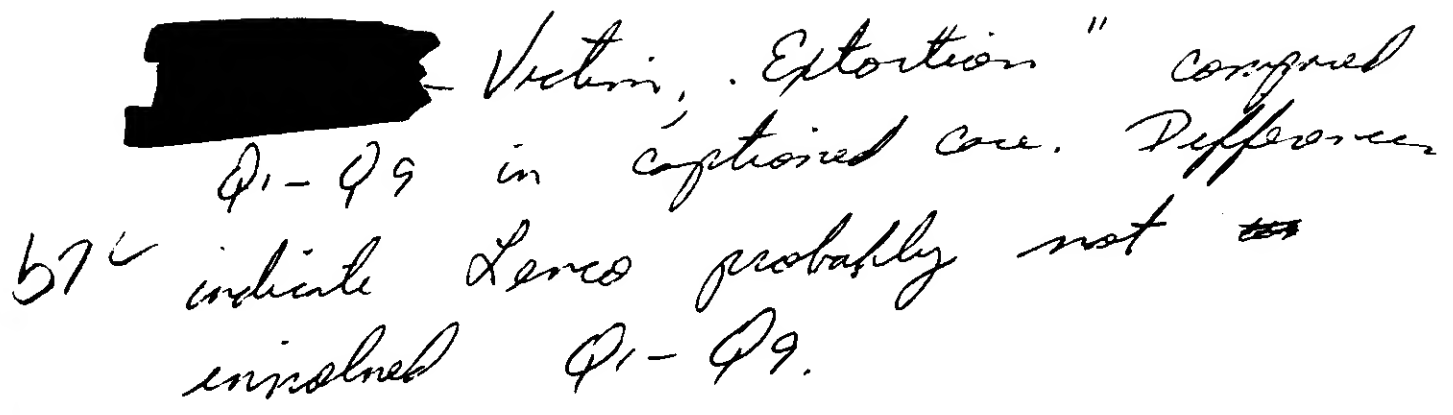 - Victim, . Extortion" compared
Q1 - Q9 in captioned case. Differences
b7c indicate Lenco probably not
involved Q1 - Q9.